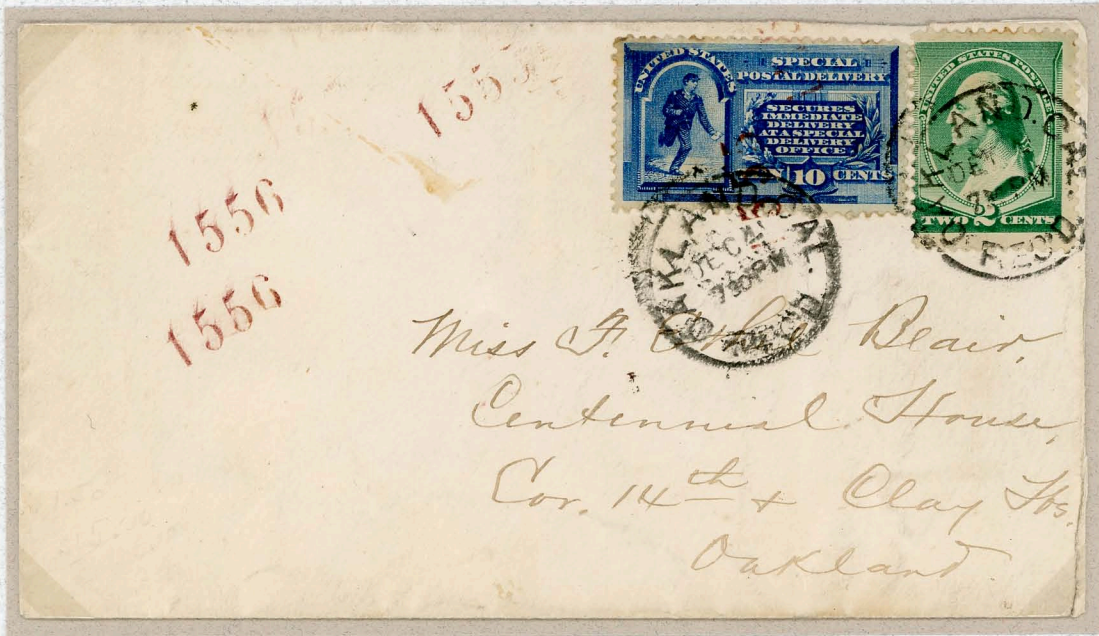 1555
UNITED STATES
SPECIAL
POSTAL DELIVERY
SECURES
IMMEDIATE
DELIVERY
AT A SPECIAL
DELIVERY
OFFICE.
10 CENTS
UNITED STATES POSTAGE
TWO 2 CENTS
OAKLAND. CAL.
REC'D
OAKLAND. CAL.
DEC
730PM
REC'D
1556
1556
Miss F. Ethel Blair,
Centennial House,
Cor. 14th & Clay Sts.
Oakland